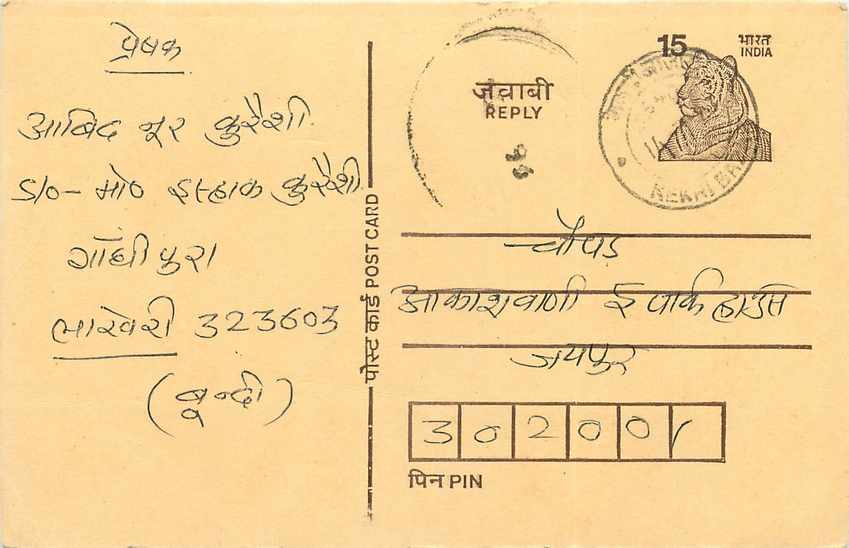 प्रेषक
आबिद नूर कुरैशी
S/o - मो० इस्हाक कुरैशी
गाँधी पुरा
लाखेरी 323603
(बून्दी)
पोस्ट कार्ड POST CARD
जवाबी
REPLY
15
भारत
INDIA
चौपड़
आकाशवाणी ई पार्क हाउस
जयपुर
302001
पिन PIN